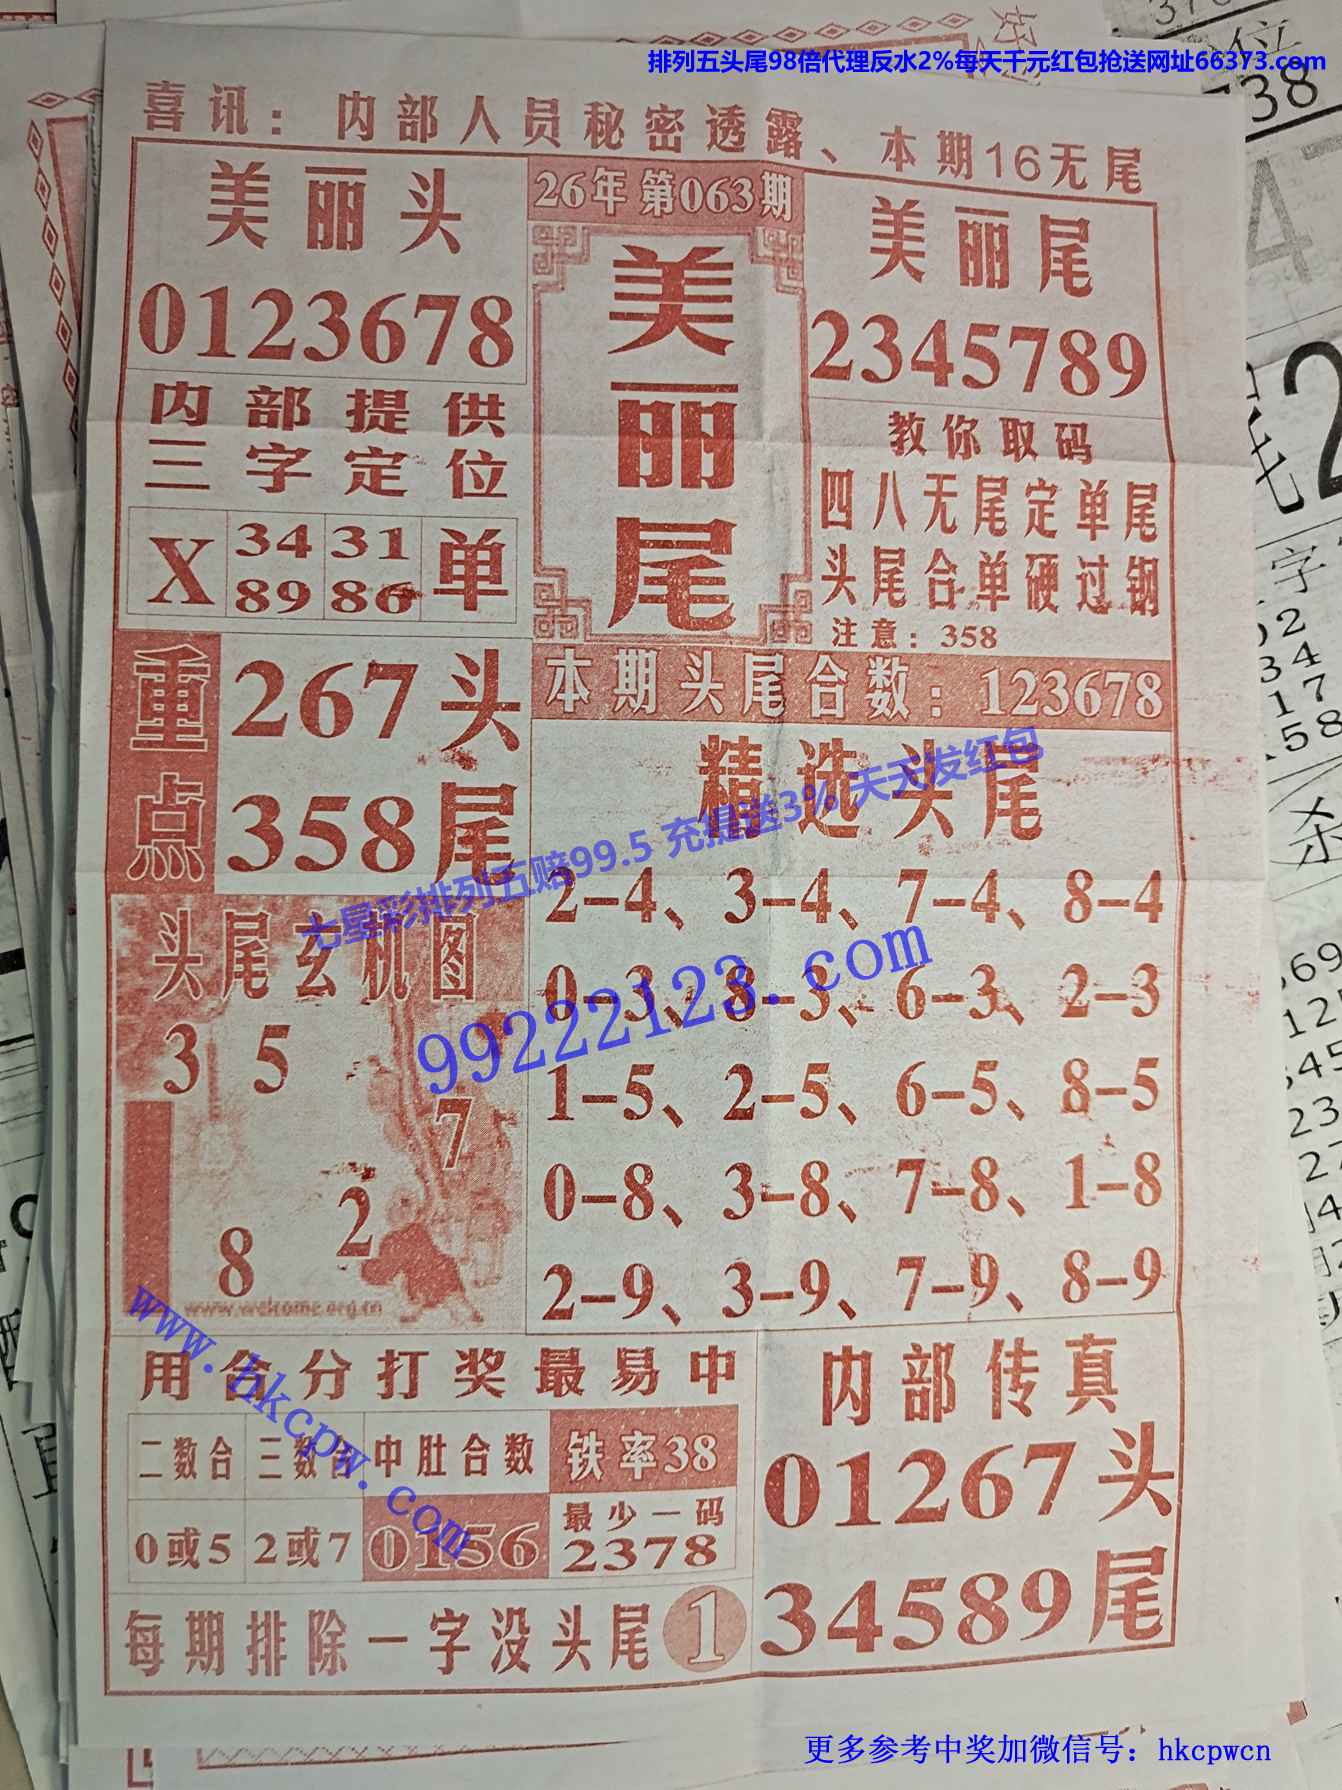 排列五头尾98倍代理反水2%每天千元红包抢送网址66373.com
喜讯：内部人员秘密透露、本期16无尾
美丽头
0123678
26年第063期
美丽尾
美丽尾
2345789
内部提供
三字定位
X 34 31 单
89 86
教你取码
四八无尾定单尾
头尾合单硬过钢
注意：358
重点
267头
358尾
本期头尾合数：123678
精选头尾
2-4、3-4、7-4、8-4
0-3、8-3、6-3、2-3
1-5、2-5、6-5、8-5
0-8、3-8、7-8、1-8
2-9、3-9、7-9、8-9
七星彩排列五赔99.5 充提送3% 天天发红包
99222123.com
头尾玄机图
3 5
7
2
8
www.welcome.org.cn
www.hkcpw.com
用合分打奖最易中
二数合 三数合 中肚合数 铁率38
0或5 2或7 0156 最少一码
2378
每期排除一字没头尾 1
内部传真
01267头
34589尾
更多参考中奖加微信号：hkcpwcn